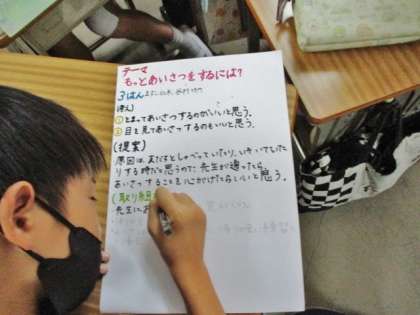 テーマ
もっとあいさつをするには?
3はん
(考え)
①とまってあいさつするのがいいと思う。
②目を見てあいさつするのもいいと思う。
(提案)
原因は、友だちとしゃべっていたり、いそいでいた
りする時だと思うので、先生が通ったら、
あいさつすることを心がけたらいいと思う。
(取り組
先生にお